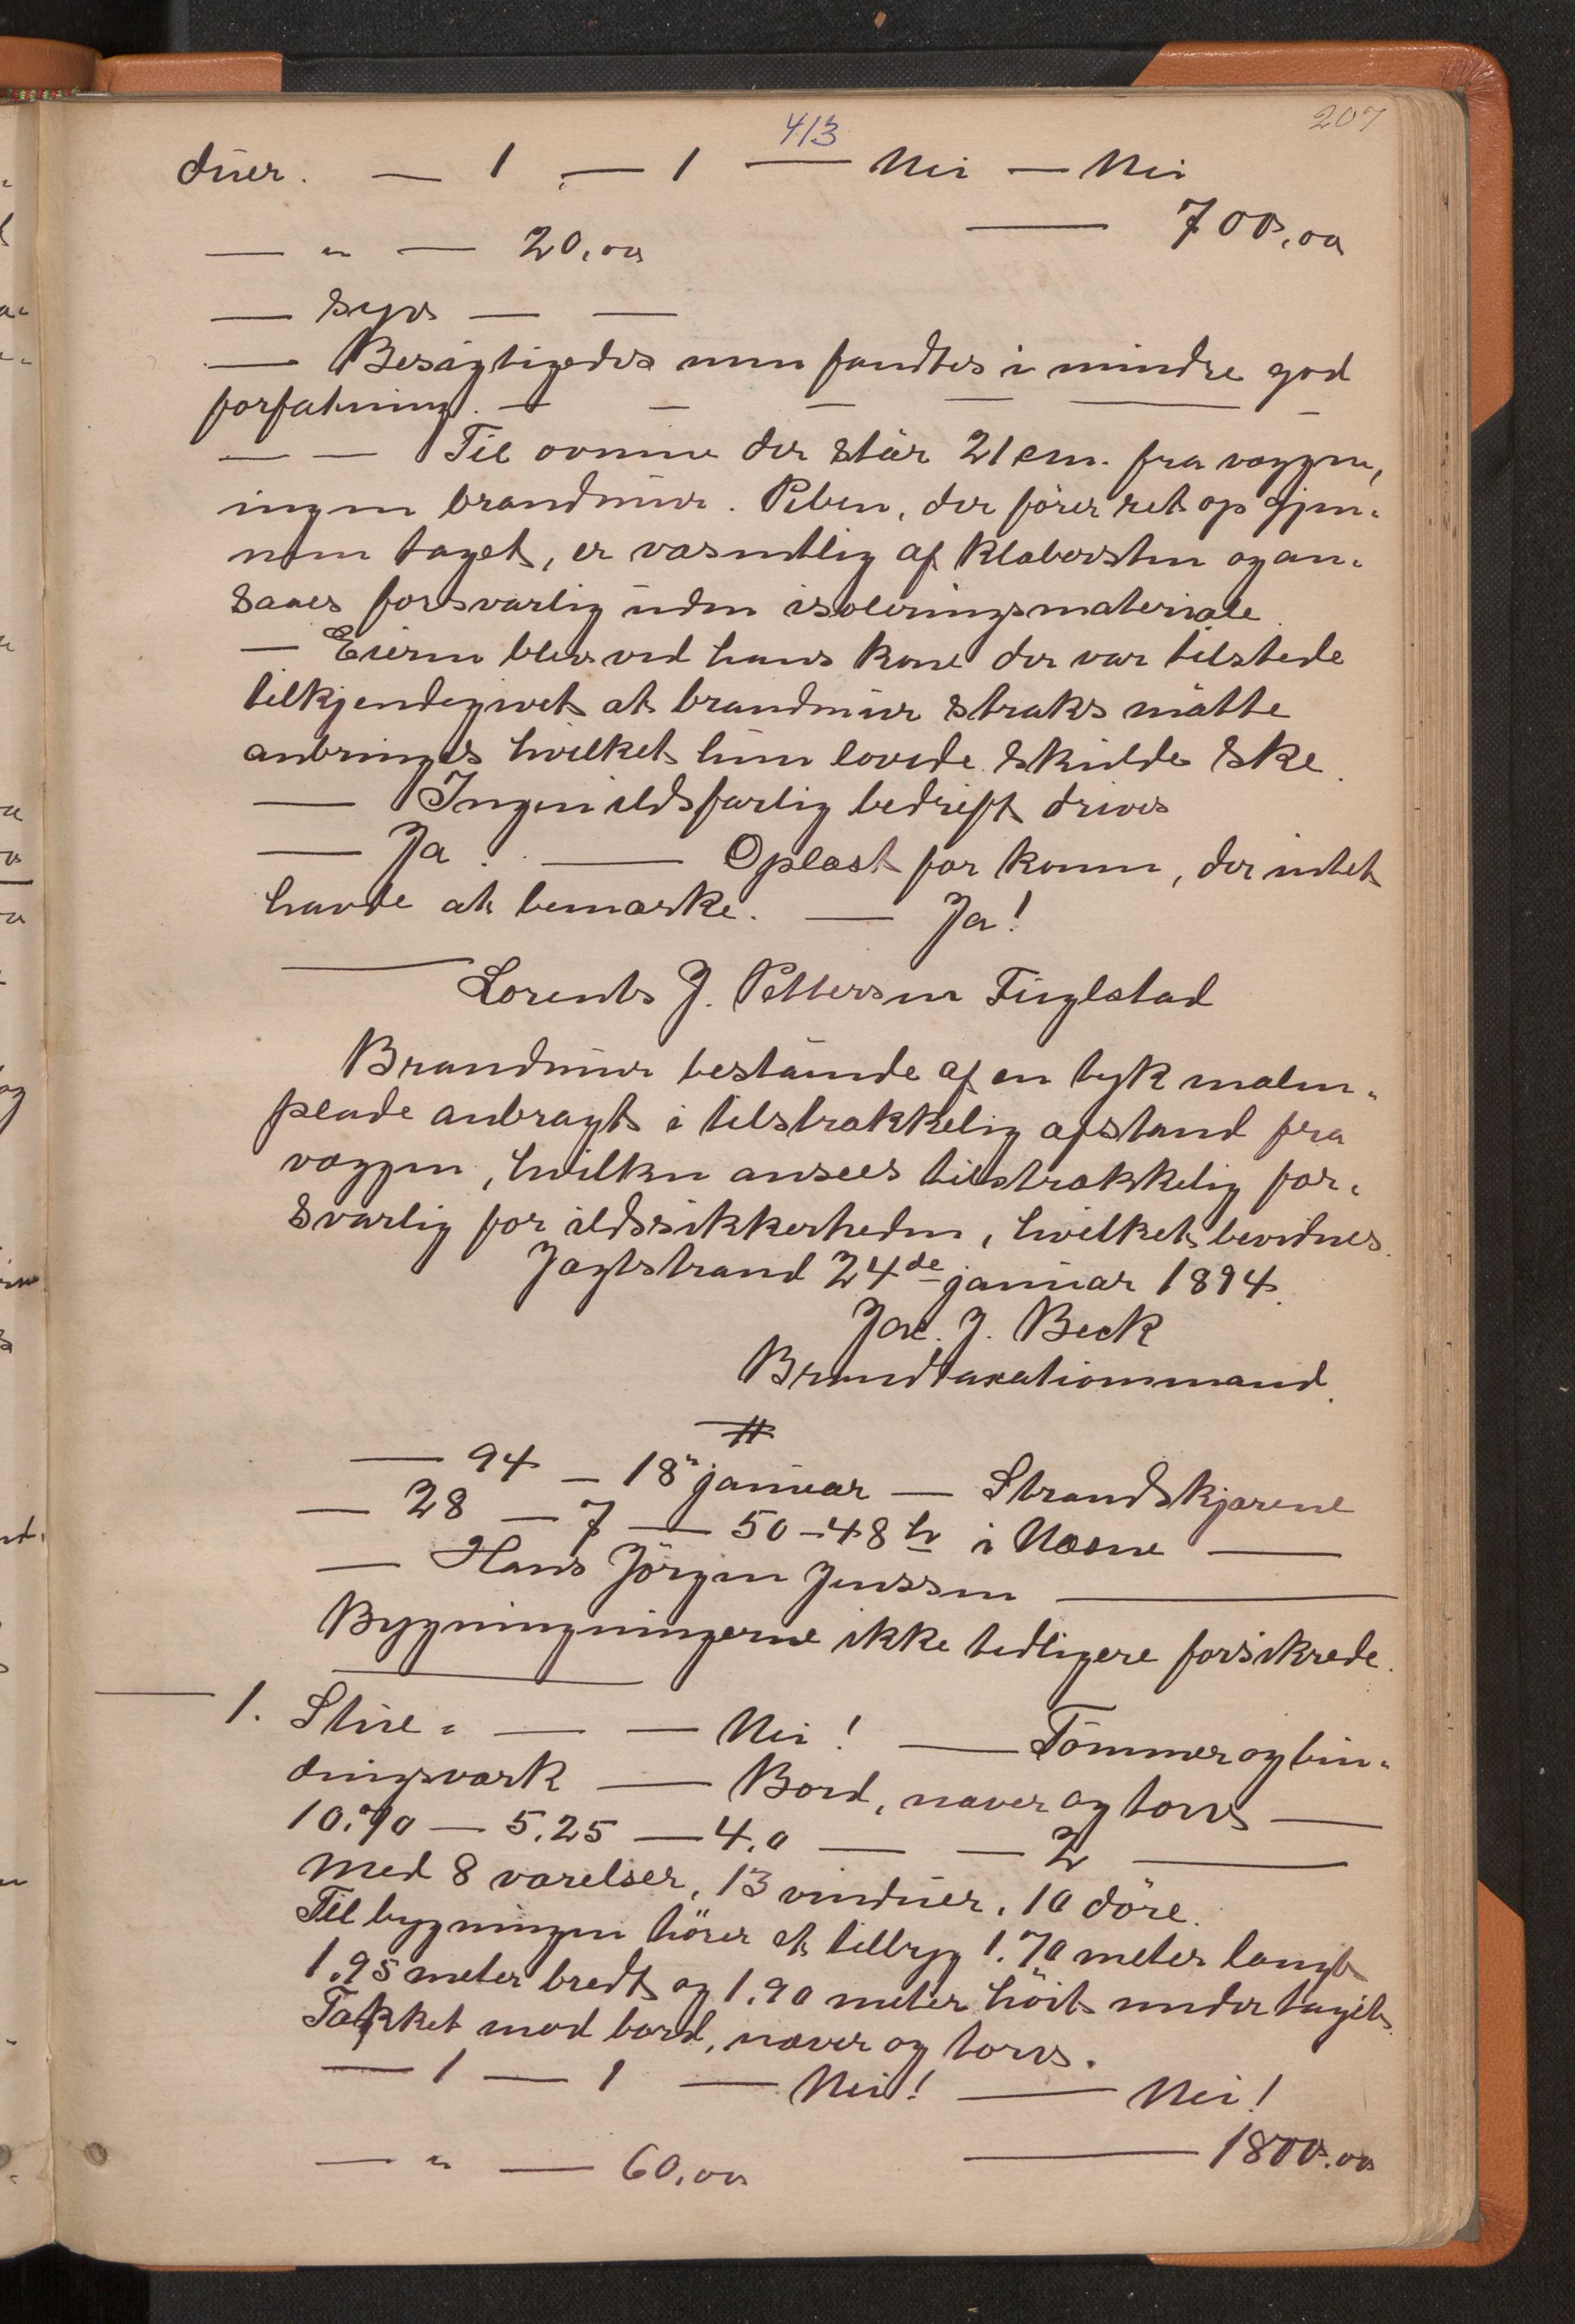 413
207
duer. — 1 — 1 — Nei — Nei
— 700,00
— " — 20,00
— Syd — —
— Besigtigedes men fandtes i mindre god
forfatning. — — — — — —
— — Til ovnene der står 21 cm. fra væggen,
ingen brandmur. Piben, der fører ret op gjen-
nem taget, er væsentlig af klebersten og an-
saaes forsvarlig uden isoleringsmateriale.
— Eieren blev ved hans kone der var tilstede
tilkjendegivet at brandmur straks måtte
anbringes hvilket hun lovede skulde ske.
— Ingen ildsfarlig bedrift drives
— Ja. — Oplæst for konen, der intet
havde at bemærke. — Ja!
— Lorents J. Pettersen Fuglstad
Brandmur bestående af en tyk malm-
plade anbragt i tilstrækkelig afstand fra
væggen, hvilken ansees tilstrækkelig for-
svarlig for ildssikkerheden, hvilket bevidnes.
Jagtstrand 24de januar 1894.
Jac. J. Beck
Brandtaxationmand.
— 94 — 18" januar — Strandskjærene
— 28 — 7 — 50-48 hr i Næsne —
— Hans Jörgen Jenssen —
Bygningningerne ikke tidligere forsikrede.
— 1. Stue. — — Nei! — Tømmer og bin-
dingsværk — Bord, næver og torv —
10.70 — 5.25 — 4.0 — — 2 —
med 8 værelser, 13 vinduer, 10 döre.
Til bygningen hörer et tilbyg 1.70 meter langt
1.95 meter bredt og 1.90 meter höit under taget.
Tækket med bord, næver og torv.
— 1 — 1 — Nei! — Nei!
— " — 60,00 — 1800.00